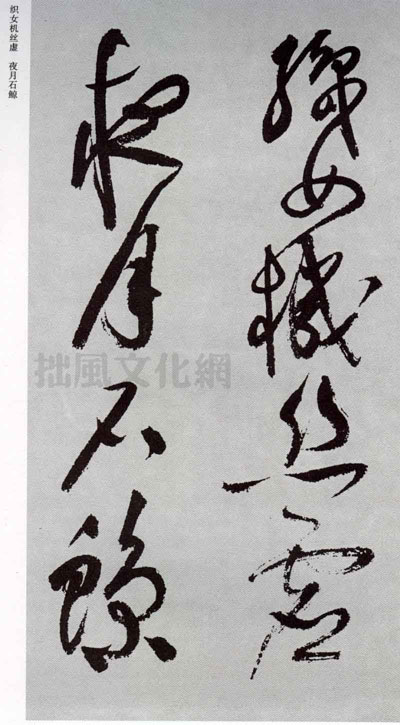 织女机丝虚 夜月石鲸
織女機丝虚
夜月石鯨
拙風文化網